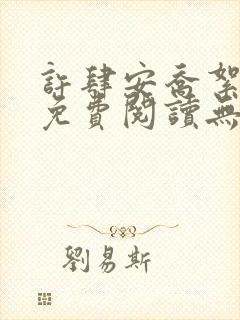 許肆安喬絮
免費閱讀無
劉易斯